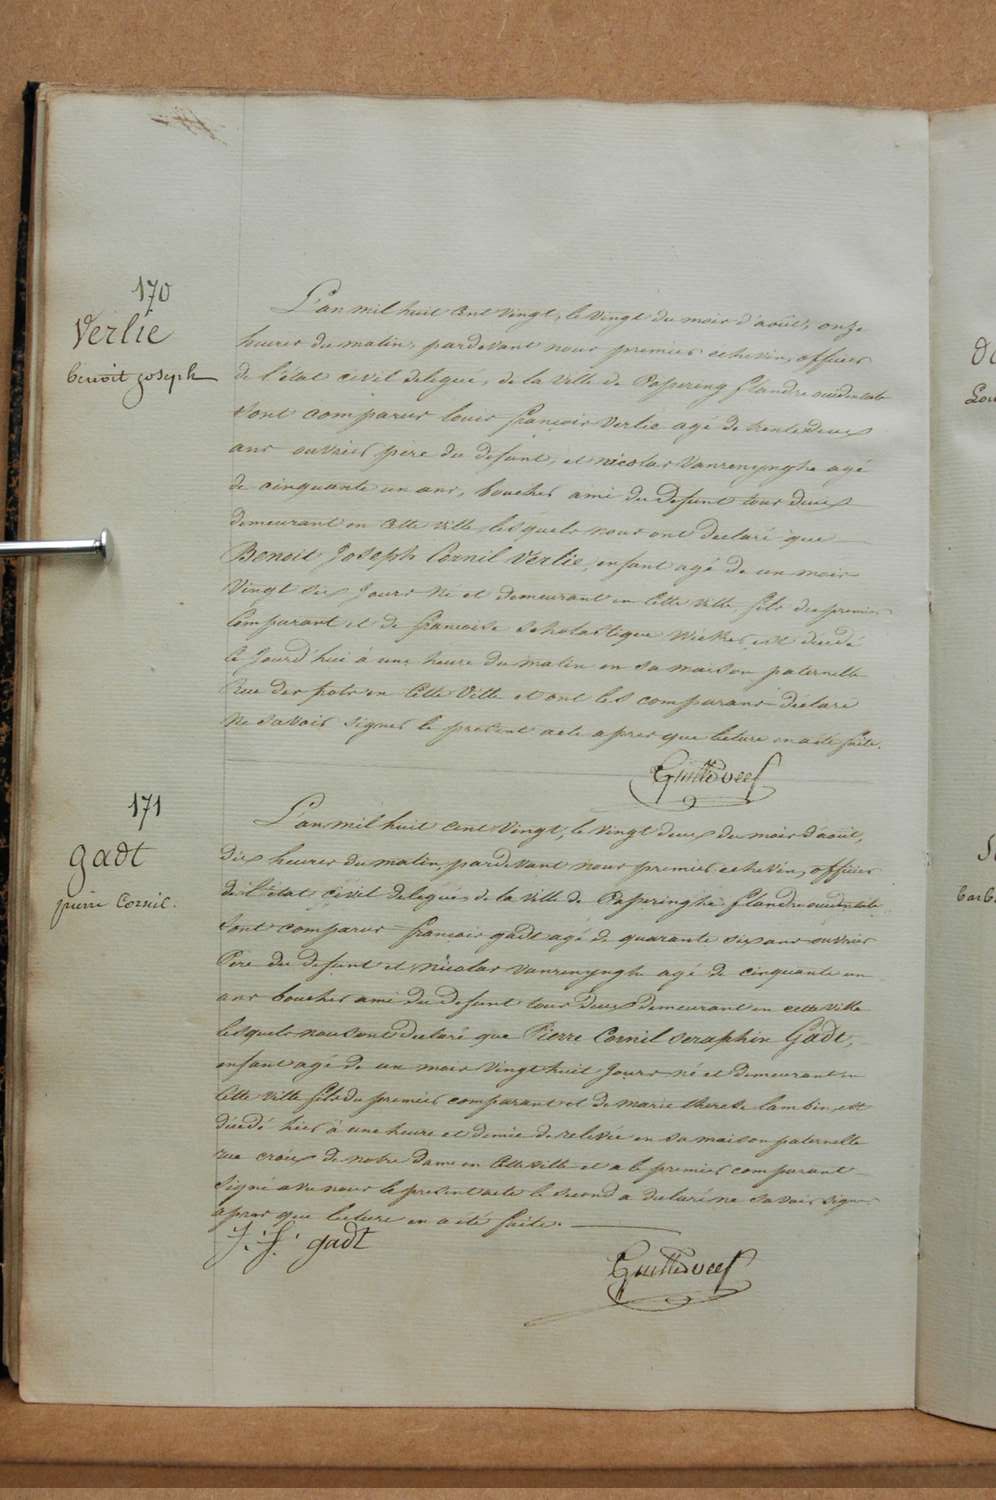 170
Verlie
benoit joseph
L'an mil huit cent vingt, le vingt du mois d'août, onze
heures du matin, pardevant nous premier echevin, officier
de l'état civil delegué, de la ville de Popering flandre occidentale
sont comparus louis françois Verlie agé de trente deux
ans ouvrier pere du defunt, et nicolas Vanrenynghe agé
de cinquante un ans, boucher ami du defunt tous deux
demeurant en cette ville, lesquels nous ont declaré que
Benoit Joseph Cornil Verlie, enfant agé de un mois
vingt six jours né et demeurant en cette ville, fils du premier
comparant et de francoise scholastique est decedé
ce jourd'hui à une heure du matin en sa maison paternelle
rue des pots en cette ville et ont les comparans declaré
ne savoir signer le present acte apres que lecture en a été faite.
171
gadt
pierre Cornil.
L'an mil huit cent vingt, le vingt deux du mois d'août,
dix heures du matin, pardevant nous premier echevin, officier
de l'état civil delegué de la ville de Poperinghe flandre occidentale
sont comparus françois gadt agé de quarante six ans ouvrier
Pere du defunt et nicolas Vanrenynghe agé de cinquante un
ans boucher ami du defunt tous deux demeurant en cette ville
lesquels nous ont declaré que Pierre Cornil seraphin Gadt,
enfant agé de un mois vingt huit jours né et demeurant en
cette ville fils du premier comparant et de marie therese lambin, est
décedé hier à une heure et demie de relevée en sa maison paternelle
rue croix de notre dame en cette ville et a le premier comparant
signé avec nous le present acte le second a declaré ne savoir signer
apres que lecture en a été faite.
j. f. gadt